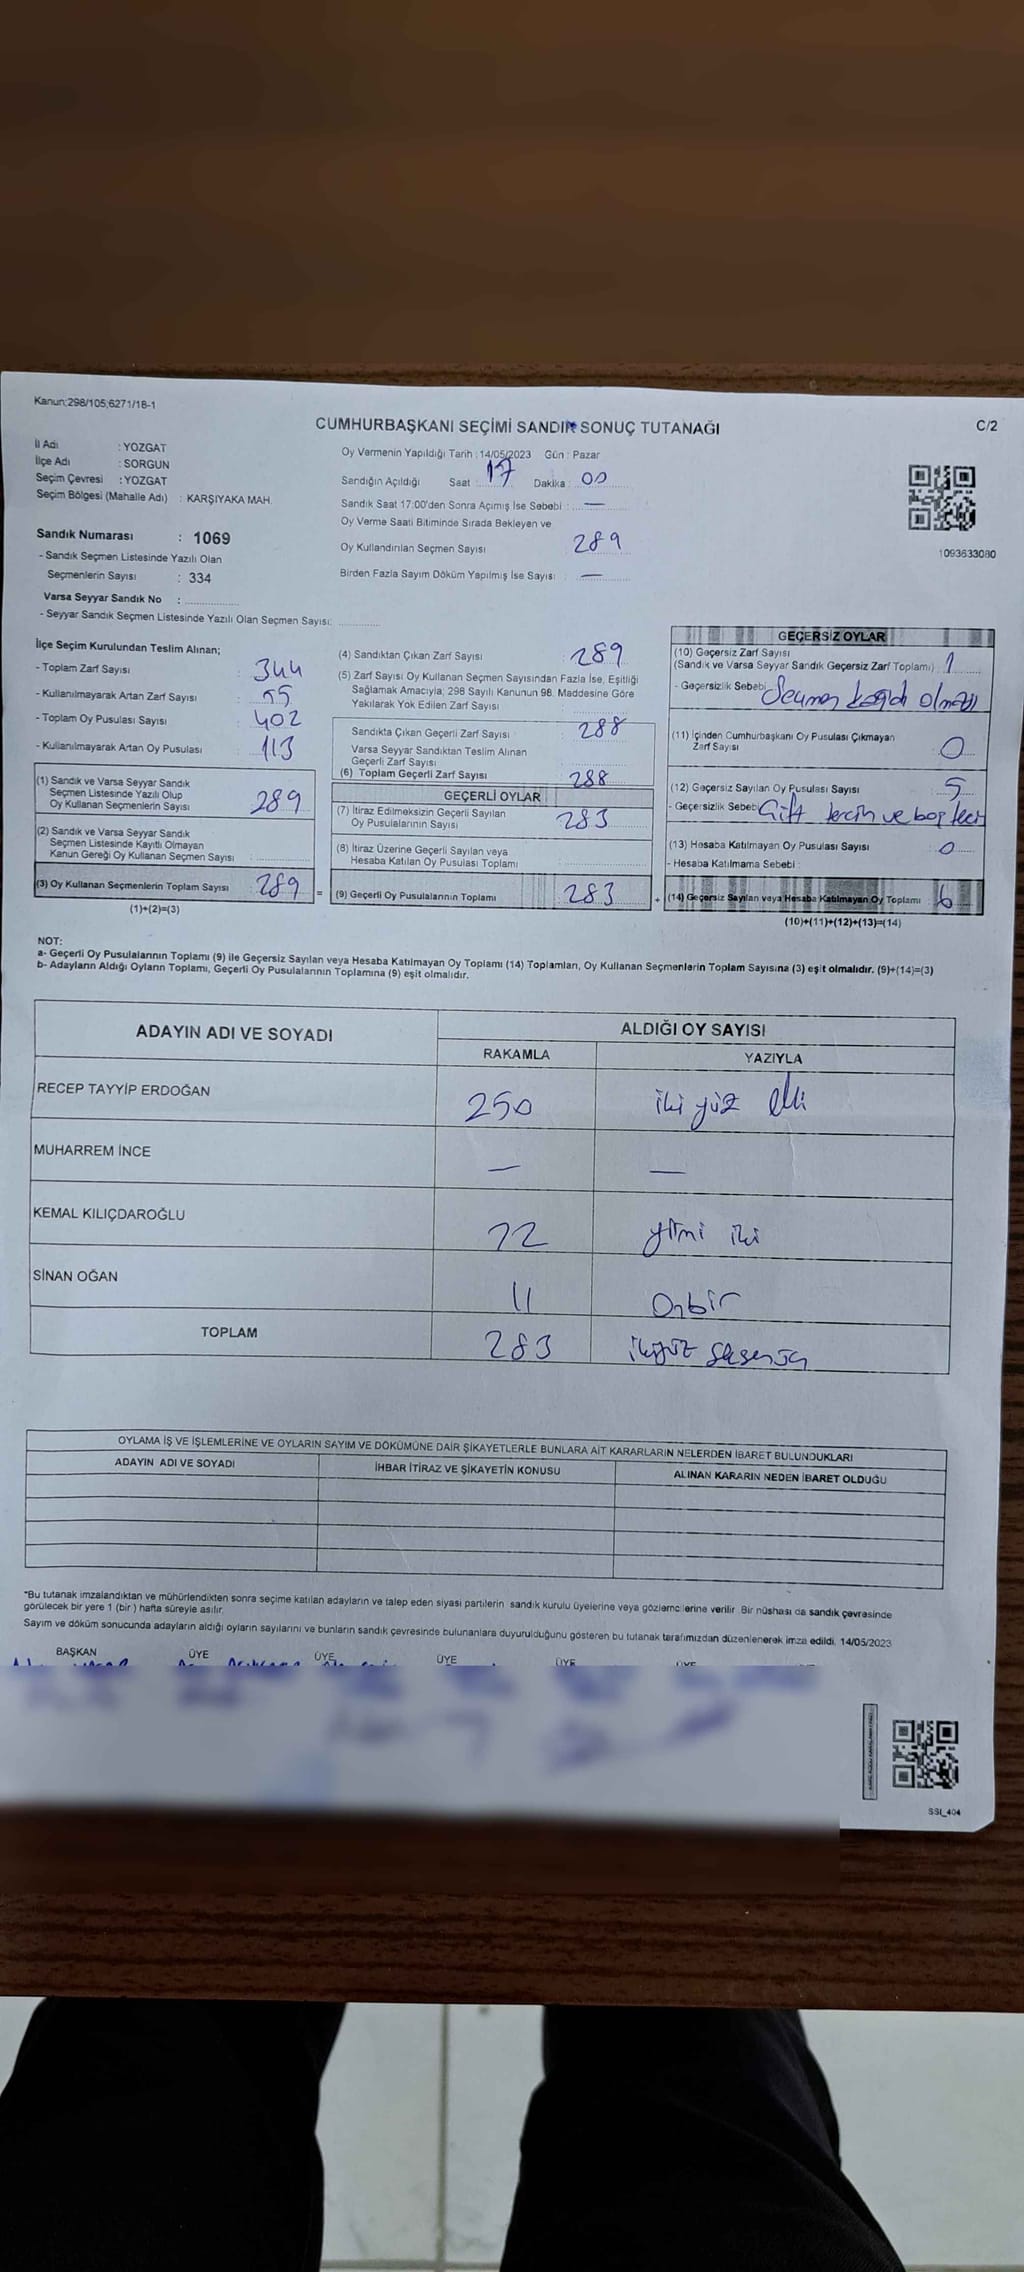 Kanun:298/105;6271/18-1
CUMHURBAŞKANI SEÇİMİ SANDIK SONUÇ TUTANAĞI
C/2
İl Adı : YOZGAT
İlçe Adı : SORGUN
Seçim Çevresi : YOZGAT
Seçim Bölgesi (Mahalle Adı) : KARŞIYAKA MAH.
Sandık Numarası : 1069
- Sandık Seçmen Listesinde Yazılı Olan
Seçmenlerin Sayısı : 334
Varsa Seyyar Sandık No :
- Seyyar Sandık Seçmen Listesinde Yazılı Olan Seçmen Sayısı:
Oy Vermenin Yapıldığı Tarih : 14/05/2023 Gün : Pazar
Sandığın Açıldığı Saat : 17 Dakika : 00
Sandık Saat 17:00'den Sonra Açımış İse Sebebi : —
Oy Verme Saati Bitiminde Sırada Bekleyen ve
Oy Kullandırılan Seçmen Sayısı 289
Birden Fazla Sayım Döküm Yapılmış İse Sayısı : —
1093633080
İlçe Seçim Kurulundan Teslim Alınan;
- Toplam Zarf Sayısı 344
- Kullanılmayarak Artan Zarf Sayısı 55
- Toplam Oy Pusulası Sayısı 402
- Kullanılmayarak Artan Oy Pusulası 113
(1) Sandık ve Varsa Seyyar Sandık
Seçmen Listesinde Yazılı Olup
Oy Kullanan Seçmenlerin Sayısı 289
(2) Sandık ve Varsa Seyyar Sandık
Seçmen Listesinde Kayıtlı Olmayan
Kanun Gereği Oy Kullanan Seçmen Sayısı
(3) Oy Kullanan Seçmenlerin Toplam Sayısı 289 =
(1)+(2)=(3)
(4) Sandıktan Çıkan Zarf Sayısı 289
(5) Zarf Sayısı Oy Kullanan Seçmen Sayısından Fazla İse, Eşitliği
Sağlamak Amacıyla; 298 Sayılı Kanunun 98. Maddesine Göre
Yakılarak Yok Edilen Zarf Sayısı
Sandıkta Çıkan Geçerli Zarf Sayısı 288
Varsa Seyyar Sandıktan Teslim Alınan
Geçerli Zarf Sayısı
(6) Toplam Geçerli Zarf Sayısı 288
GEÇERLİ OYLAR
(7) İtiraz Edilmeksizin Geçerli Sayılan
Oy Pusulalarının Sayısı 283
(8) İtiraz Üzerine Geçerli Sayılan veya
Hesaba Katılan Oy Pusulası Toplamı
(9) Geçerli Oy Pusulalarının Toplamı : 283 +
GEÇERSİZ OYLAR
(10) Geçersiz Zarf Sayısı
(Sandık ve Varsa Seyyar Sandık Geçersiz Zarf Toplamı) 1
- Geçersizlik Sebebi
(11) İçinden Cumhurbaşkanı Oy Pusulası Çıkmayan
Zarf Sayısı 0
(12) Geçersiz Sayılan Oy Pusulası Sayısı 5
- Geçersizlik Sebebi Çift tercih ve boş
(13) Hesaba Katılmayan Oy Pusulası Sayısı 0
- Hesaba Katılmama Sebebi :
(14) Geçersiz Sayılan veya Hesaba Katılmayan Oy Toplamı : 6
(10)+(11)+(12)+(13)=(14)
NOT:
a- Geçerli Oy Pusulalarının Toplamı (9) ile Geçersiz Sayılan veya Hesaba Katılmayan Oy Toplamı (14) Toplamları, Oy Kullanan Seçmenlerin Toplam Sayısına (3) eşit olmalıdır. (9)+(14)=(3)
b- Adayların Aldığı Oyların Toplamı, Geçerli Oy Pusulalarının Toplamına (9) eşit olmalıdır.
ADAYIN ADI VE SOYADI
ALDIĞI OY SAYISI
RAKAMLA YAZIYLA
RECEP TAYYİP ERDOĞAN 250 iki yüz elli
MUHARREM İNCE — —
KEMAL KILIÇDAROĞLU 22 yirmi iki
SİNAN OĞAN 11 Onbir
TOPLAM 283 ikiyüz seksenüç
OYLAMA İŞ VE İŞLEMLERİNE VE OYLARIN SAYIM VE DÖKÜMÜNE DAİR ŞİKAYETLERLE BUNLARA AİT KARARLARIN NELERDEN İBARET BULUNDUKLARI
ADAYIN ADI VE SOYADI İHBAR İTİRAZ VE ŞİKAYETİN KONUSU ALINAN KARARIN NEDEN İBARET OLDUĞU
*Bu tutanak imzalandıktan ve mühürlendikten sonra seçime katılan adayların ve talep eden siyasi partilerin sandık kurulu üyelerine veya gözlemcilerine verilir. Bir nüshası da sandık çevresinde
görülecek bir yere 1 (bir) hafta süreyle asılır.
Sayım ve döküm sonucunda adayların aldığı oyların sayılarını ve bunların sandık çevresinde bulunanlara duyurulduğunu gösteren bu tutanak tarafımızdan düzenlenerek imza edildi. 14/05/2023
BAŞKAN ÜYE ÜYE ÜYE ÜYE ÜYE
SSI_404